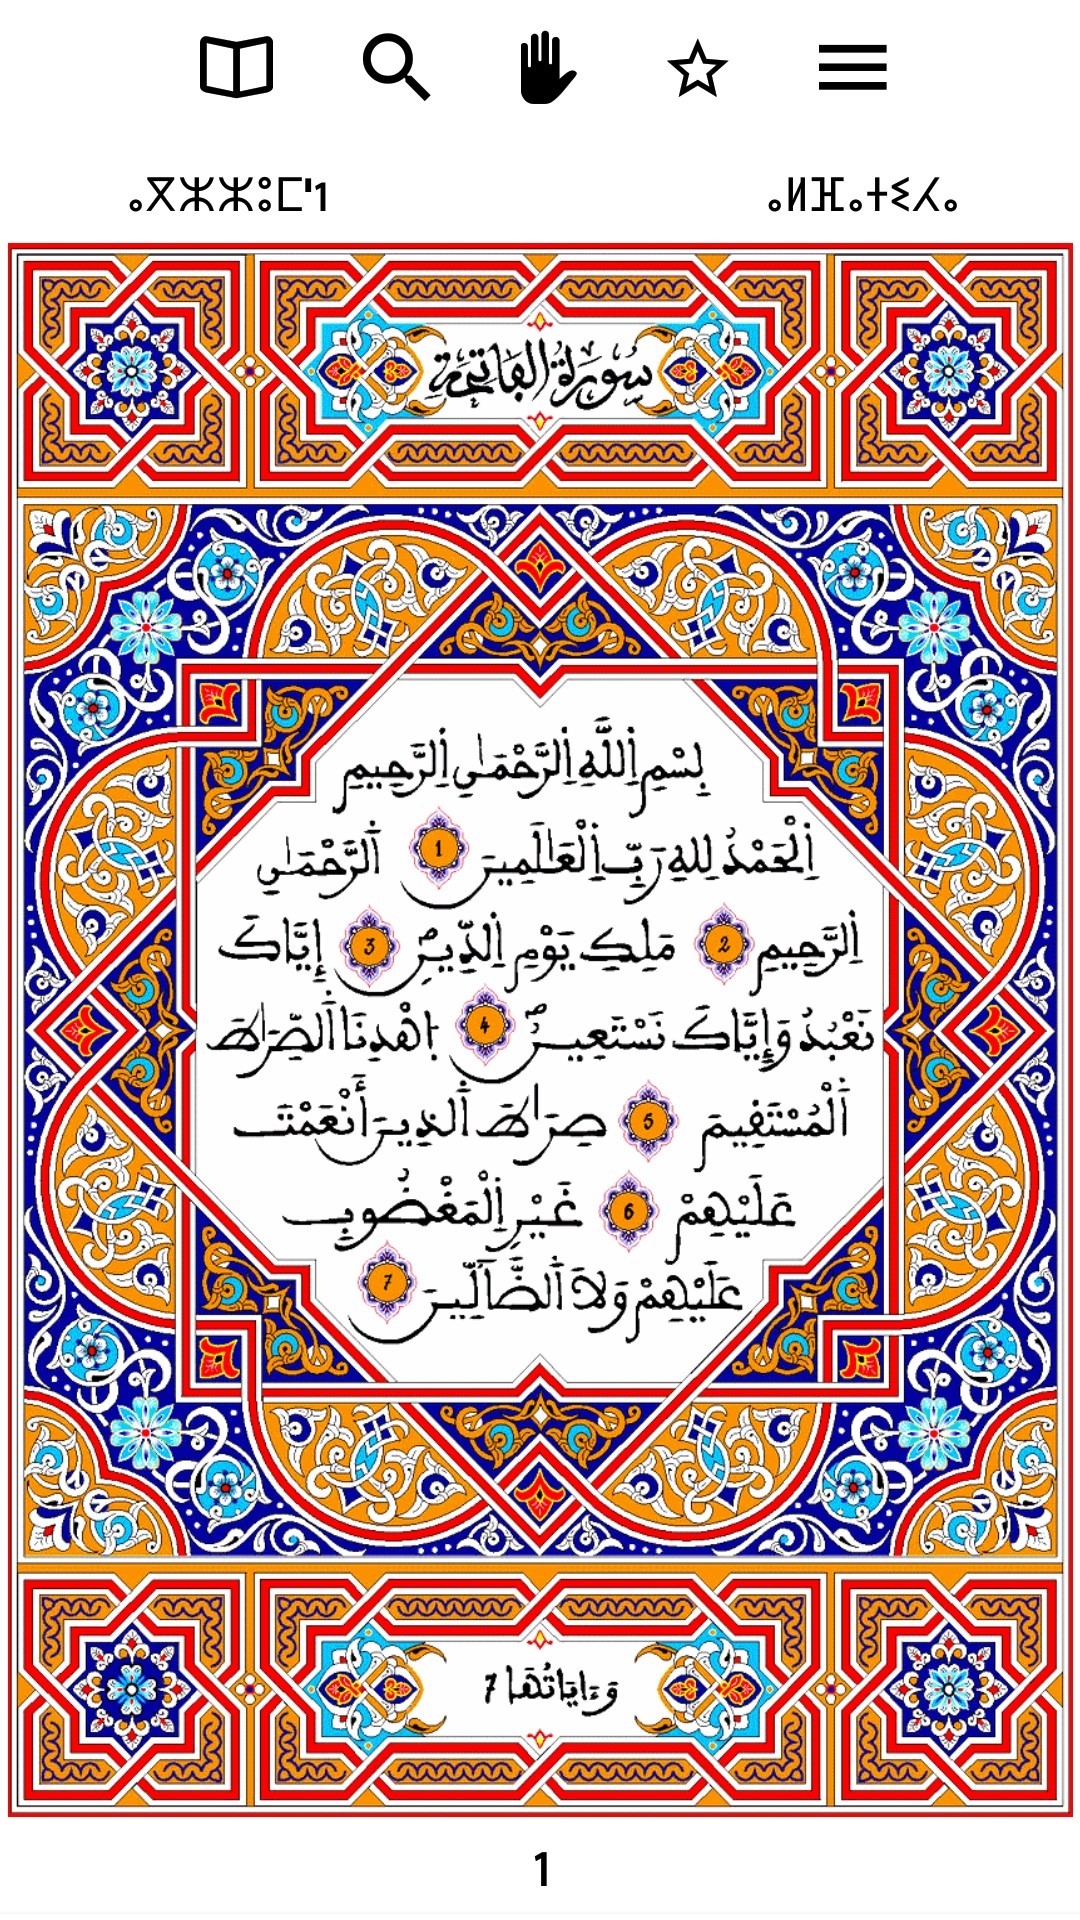 ⴰⴳⵣⵣⵓⵎ'1 ⴰⵍⴼⴰⵜⵉⵃⴰ
سُورَةُ الْفَاتِحَةِ
بِسْمِ اِ۬للَّهِ اِ۬لرَّحْمَٰنِ اِ۬لرَّحِيمِ
اِ۬لْحَمْدُ لِلهِ رَبِّ اِ۬لْعَٰلَمِينَ 1 اَ۬لرَّحْمَٰنِ
اِ۬لرَّحِيمِ 2 مَلِكِ يَوْمِ اِ۬لدِّينِ 3 إِيَّاكَ
نَعْبُدُ وَإِيَّاكَ نَسْتَعِينُ 4 اِ۪هْدِنَا اَ۬لصِّرَٰطَ
اَ۬لْمُسْتَقِيمَ 5 صِرَٰطَ اَ۬لذِينَ أَنْعَمْتَ
عَلَيْهِمْ 6 غَيْرِ اِ۬لْمَغْضُوبِ
عَلَيْهِمْ وَلَا اَ۬لضَّآلِّينَ 7
وَءَايَاتُهَا 7
1